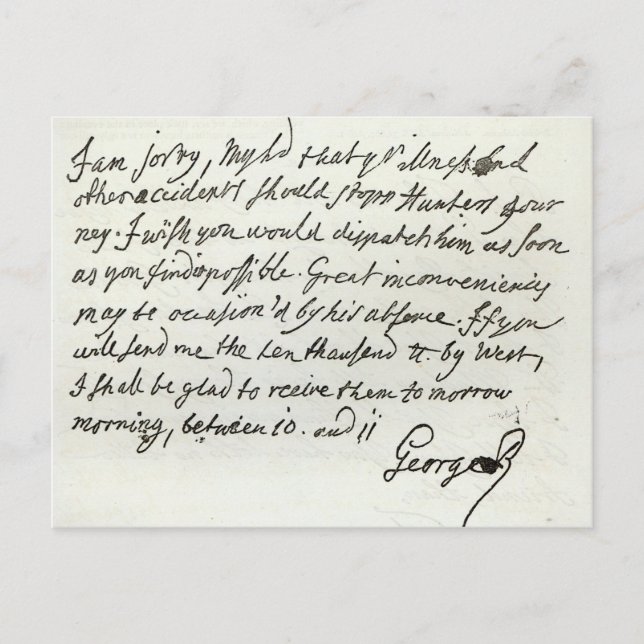 I am sorry, My Ld that yr illness and
other accidents should stopp Hunters jour
ney. I wish you would dispatch him as soon
as you find possible. Great inconveniencies
may be occasion'd by his absence. If you
will send me the ten thousend tt. by West,
I shall be glad to rceive them to morrow
morning, between 10. and 11
George R